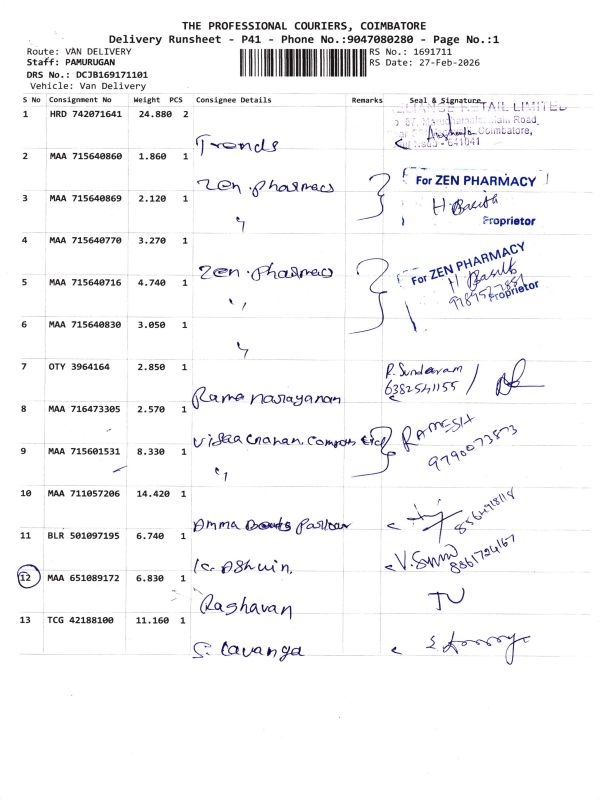 THE PROFESSIONAL COURIERS, COIMBATORE
Delivery Runsheet - P41 - Phone No.:9047080280 - Page No.:1
Route: VAN DELIVERY RS No.: 1691711
Staff: PAMURUGAN RS Date: 27-Feb-2026
DRS No.: DCJB169171101
Vehicle: Van Delivery
S No Consignment No Weight PCS Consignee Details Remarks Seal & Signature
1 HRD 742071641 24.880 2
RETAIL LIMITED
Road,
Coimbatore,
641041
Trends
2 MAA 715640860 1.860 1
Zen. Pharmacy
For ZEN PHARMACY
3 MAA 715640869 2.120 1
"
Proprietor
4 MAA 715640770 3.270 1
Zen. Pharmacy
For ZEN PHARMACY
5 MAA 715640716 4.740 1
"
Proprietor
6 MAA 715640830 3.050 1
"
7 OTY 3964164 2.850 1
P. Sundaram
6382541155
Rama narayanan
8 MAA 716473305 2.570 1
RAMESH
9790073873
9 MAA 715601531 8.330 1
"
10 MAA 711057206 14.420 1
Amma
11 BLR 501097195 6.740 1
K. Ashwin.
12 MAA 651089172 6.830 1
Raghavan
13 TCG 42188100 11.160 1
S. Lavanya